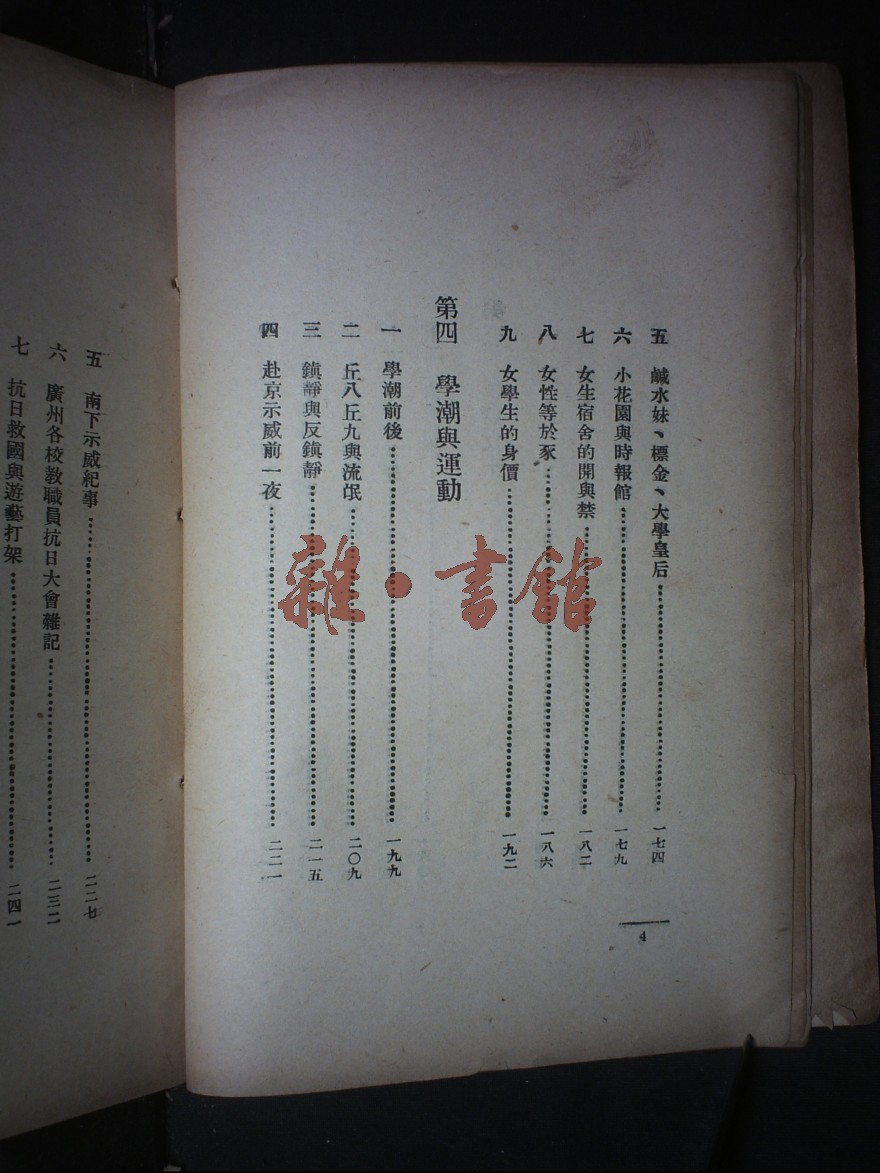 五 鹹水妹、標金、大學皇后……一七四
六 小花園與時報館……一七九
七 女生宿舍的開與禁……一八二
八 女性等於豕……一八六
九 女學生的身價……一九二
第四 學潮與運動
一 學潮前後……一九九
二 丘八丘九與流氓……二〇九
三 鎮靜與反鎮靜……二一五
四 赴京示威前一夜……二二一
4
五 南下示威紀事……二二七
六 廣州各校教職員抗日大會雜記……二三二
七 抗日救國與遊藝打架……二四一
雜·書館